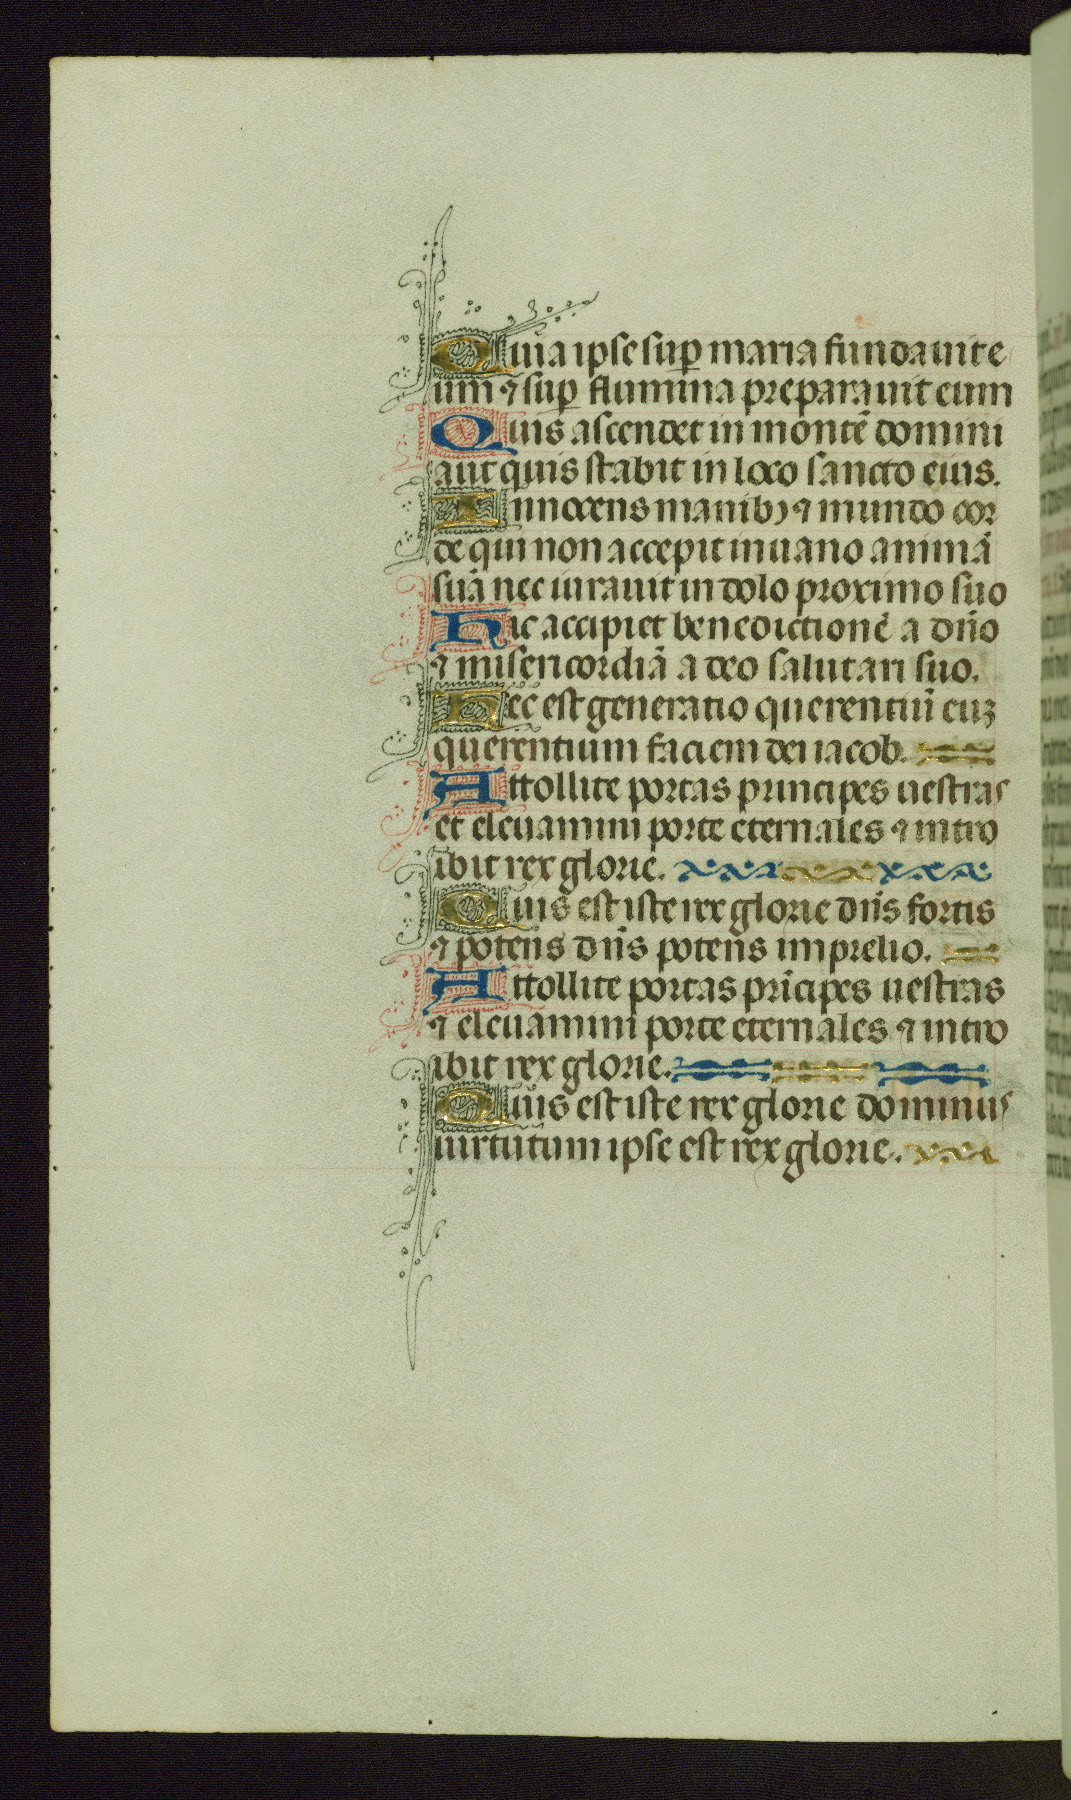 Quia ipse sup̱ maria fundauit e
um ⁊ sup̱ flumina preparauit eum
Quis ascendet in montē domini
aut quis stabit in loco sancto eius.
Innocens manibꝯ ⁊ mundo cor
de qui non accepit in uano animā
suā nec iurauit in dolo proximo suo
Hic accipiet benedictionē a dn̄o
⁊ misericordiā a deo salutari suo.
Hec est generatio querentiū euꝫ
querentium faciem dei iacob.
Attollite portas principes uestras
et eleuamini porte eternales ⁊ intro
ibit rex glorie.
Quis est iste rex glorie dn̄s fortis
⁊ potens dn̄s potens in prelio.
Attollite portas prīcipes uestras
⁊ eleuamini porte eternales ⁊ intro
ibit rex glorie.
Quis est iste rex glorie dominus
uirtutum ipse est rex glorie.